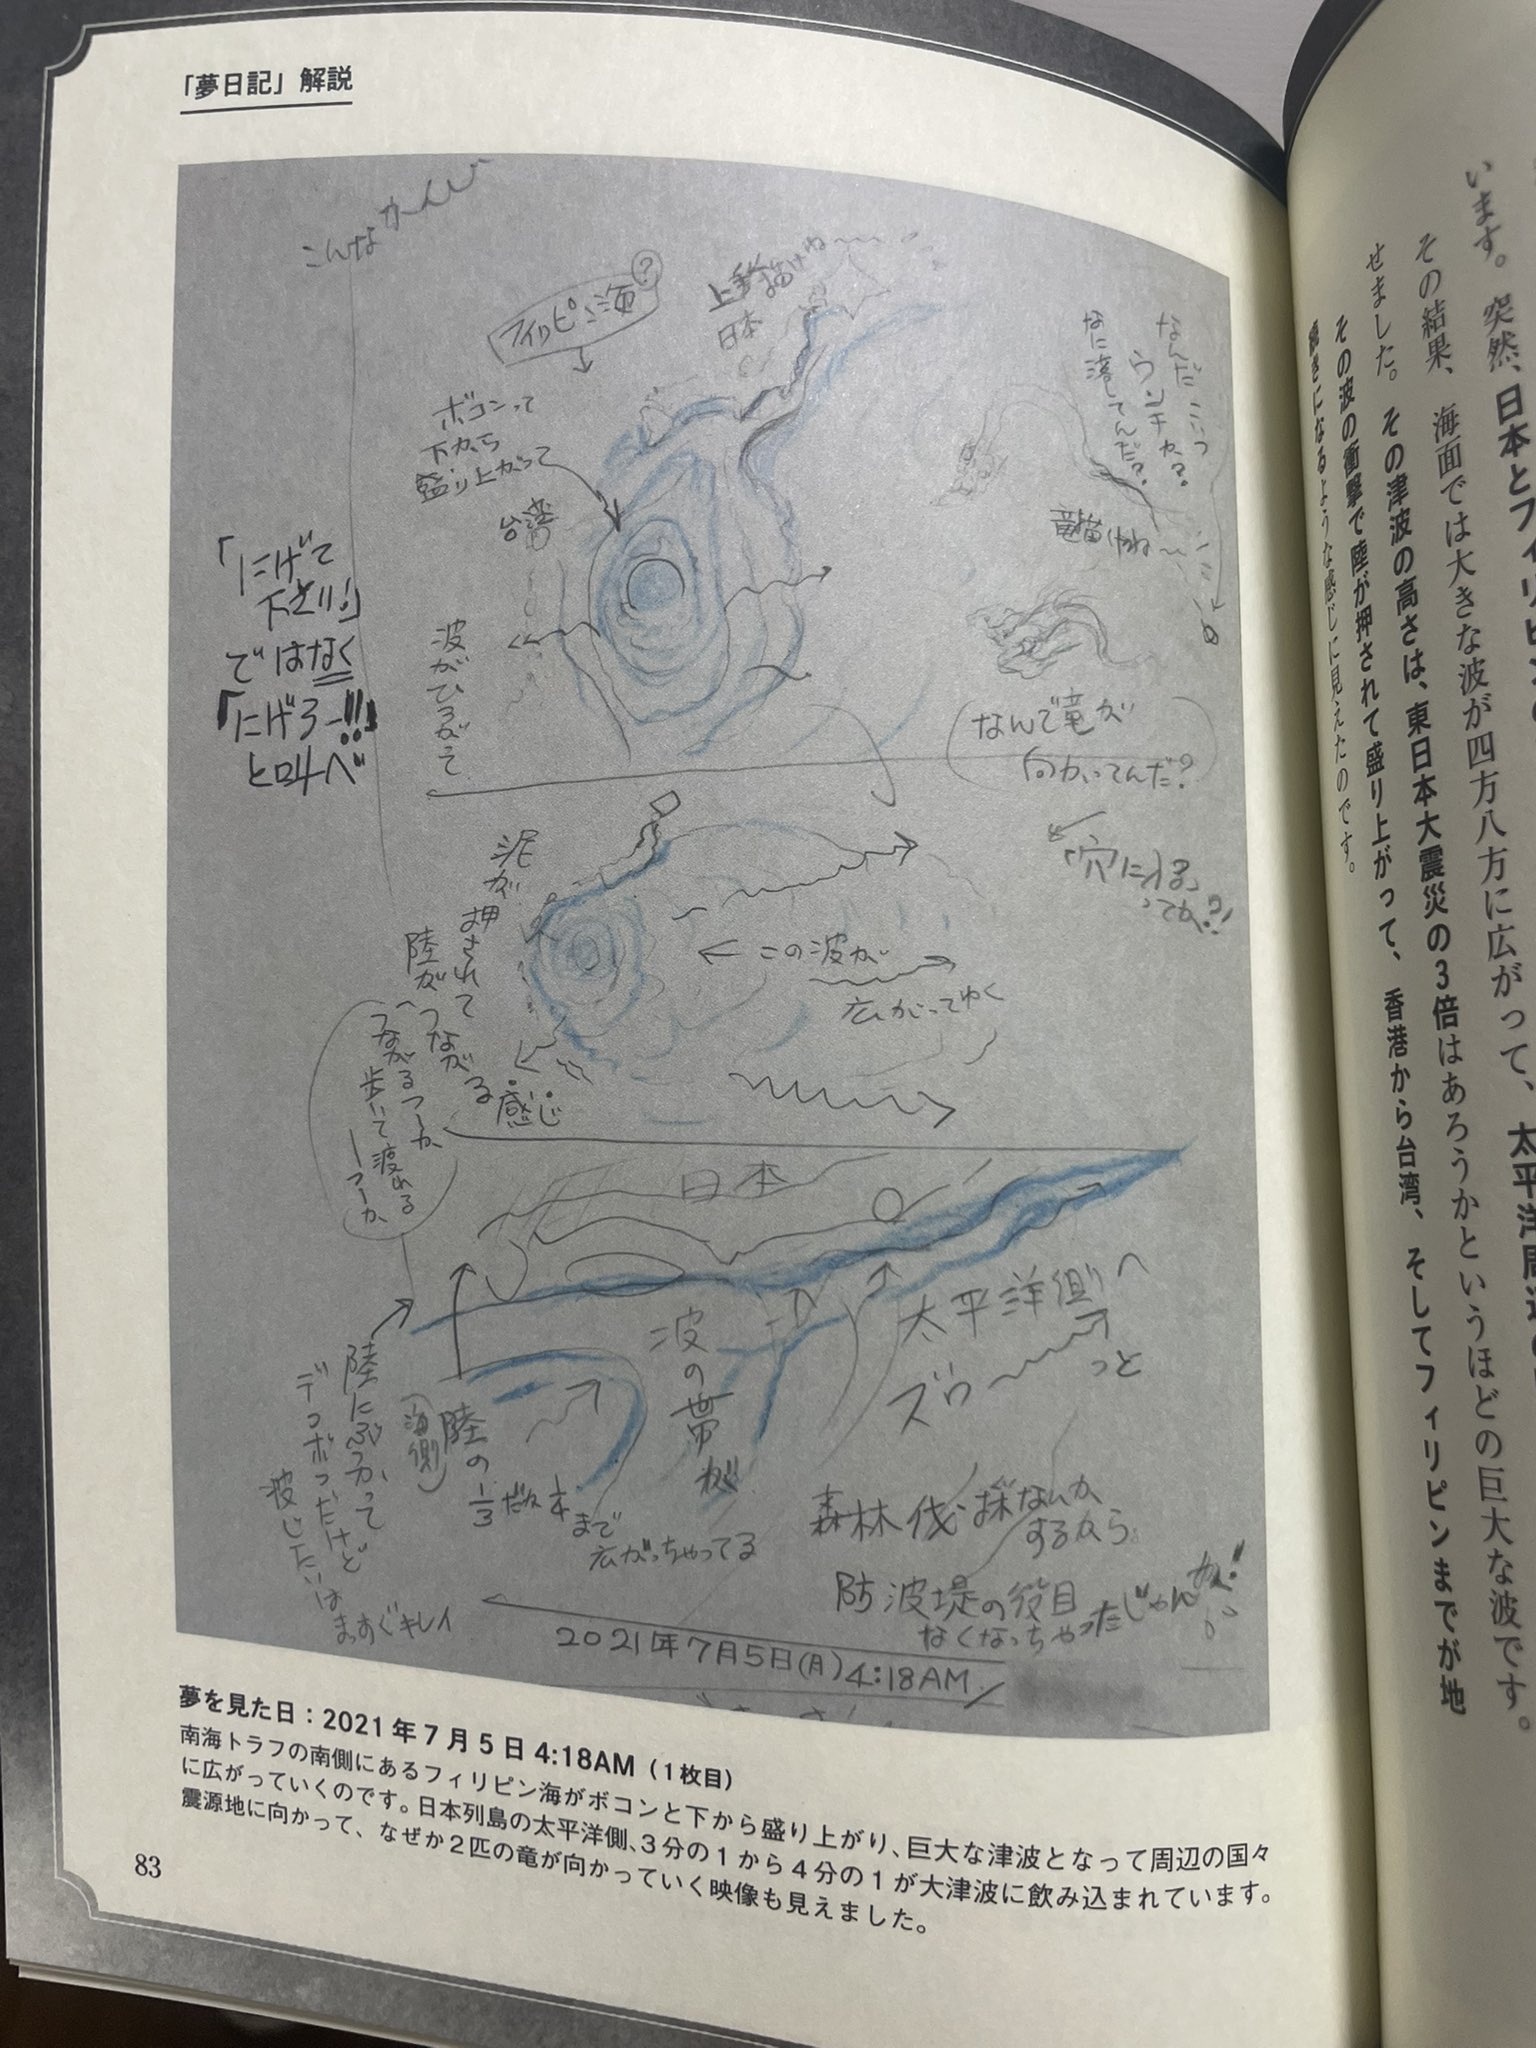 「夢日記」解説
こんなかんじ
フィリピン海?
上手く描けね〜
日本
ボコンって
下から
盛り上がって
台湾
なんだこいつ
ウンチか?
なに落してんだ?
竜描けね〜
「にげて
下さい!」
ではなく
「にげろー!!」
と叫べ
波がひろがって
なんで竜が
向かってんだ?
「穴に入る」
ってか?!
泥が押されて
陸がつながる
感じ
つながるつーか
歩いて渡れる
ーつーか
この波が
広がってゆく
日本
太平洋側へ
ズウーっと
波の帯が
陸の
(海側)
1/3だ日本まで
広がっちゃってる
陸にぶつかって
デコボコだけど
波じたいは
まっすぐキレイ
森林伐採なんか
するから
防波堤の役目
なくなっちゃったじゃんか!
2021年7月5日(月)4:18AM
夢を見た日：2021年7月5日4:18AM（1枚目）
南海トラフの南側にあるフィリピン海がボコンと下から盛り上がり、巨大な津波となって周辺の国々
に広がっていくのです。日本列島の太平洋側、3分の1から4分の1が大津波に飲み込まれています。
震源地に向かって、なぜか2匹の竜が向かっていく映像も見えました。
83
います。突然、日本とフィリピンの
その結果、海面では大きな波が四方八方に広がって、太平洋周辺の
せました。その津波の高さは、東日本大震災の3倍はあろうかというほどの巨大な波です。
その波の衝撃で陸が押されて盛り上がって、香港から台湾、そしてフィリピンまでが地
続きになるような感じに見えたのです。